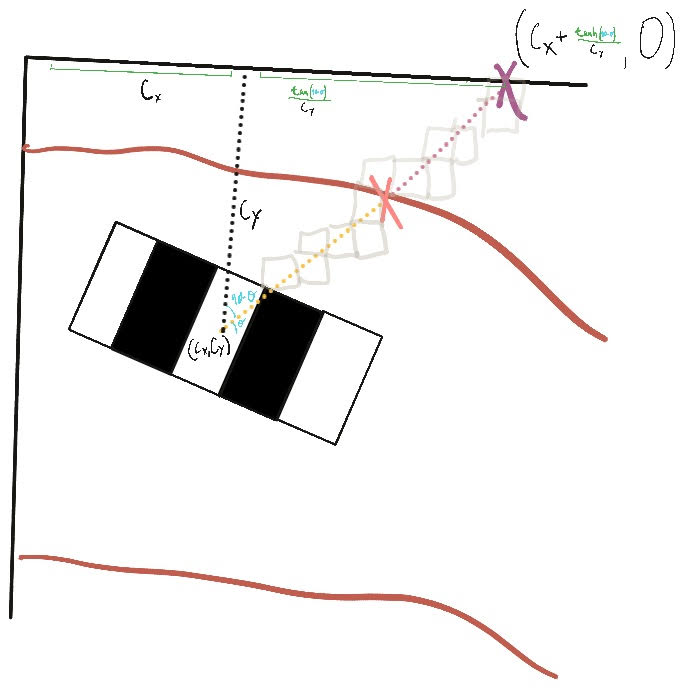 (Cx + tan(90-θ)/Cy, 0)
Cx
tan(90-θ)/Cy
Cy
90-θ
θ
(Cx,Cy)